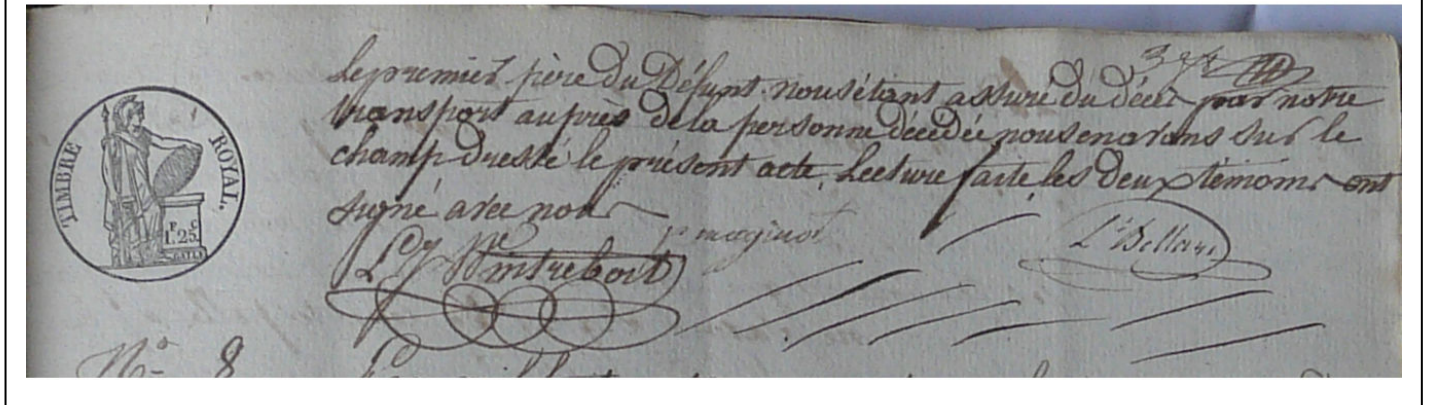 3 f.t
Le premier père du Défunt. nous étant assuré du décès par notre
transport auprès de la personne décédée nous en avons sur le
champ dressé le présent acte, Lecture faite, les deux témoins ont
signé avec nous
TIMBRE ROYAL.
F. C
1. 25.
p maginot
Lt Bellani
Nº 8